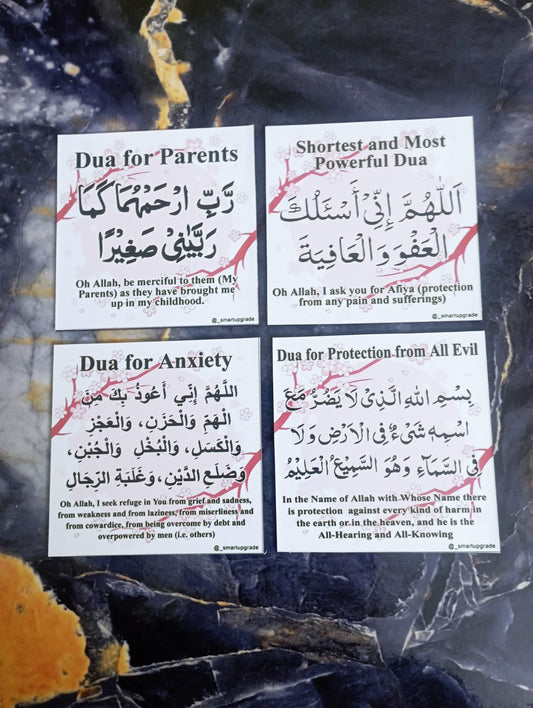 Dua for Parents
رَّبِّ ارْحَمْهُمَا كَمَا
رَبَّيٰنِيْ صَغِيْرًا
Oh Allah, be merciful to them (My
Parents) as they have brought me
up in my childhood.
@_smartupgrade
Shortest and Most
Powerful Dua
اَللّٰهُمَّ اِنِّي أَسْئَلُكَ
الْعَفْوَ وَالْعَافِيَةَ
Oh Allah, I ask you for Afiya (protection
from any pain and sufferings)
@_smartupgrade
Dua for Anxiety
اللَّهُمَّ إِنِّي أَعُوذُ بِكَ مِنَ
الْهَمِّ وَالْحَزَنِ، وَالْعَجْزِ
وَالْكَسَلِ، وَالْبُخْلِ وَالْجُبْنِ،
وَضَلَعِ الدَّيْنِ، وَغَلَبَةِ الرِّجَالِ
Oh Allah, I seek refuge in You from grief and sadness,
from weakness and from laziness, from miserliness and
from cowardice, from being overcome by debt and
overpowered by men (i.e. others)
@_smartupgrade
Dua for Protection from All Evil
بِسْمِ اللهِ الَّذِىْ لَا يَضُرُّ مَعَ
اسْمِهٖ شَىْءٌ فِى الْاَرْضِ وَلَا
فِى السَّمَاءِ وَهُوَ السَّمِيْعُ الْعَلِيْمُ
In the Name of Allah with Whose Name there
is protection against every kind of harm in
the earth or in the heaven, and he is the
All-Hearing and All-Knowing
@_smartupgrade